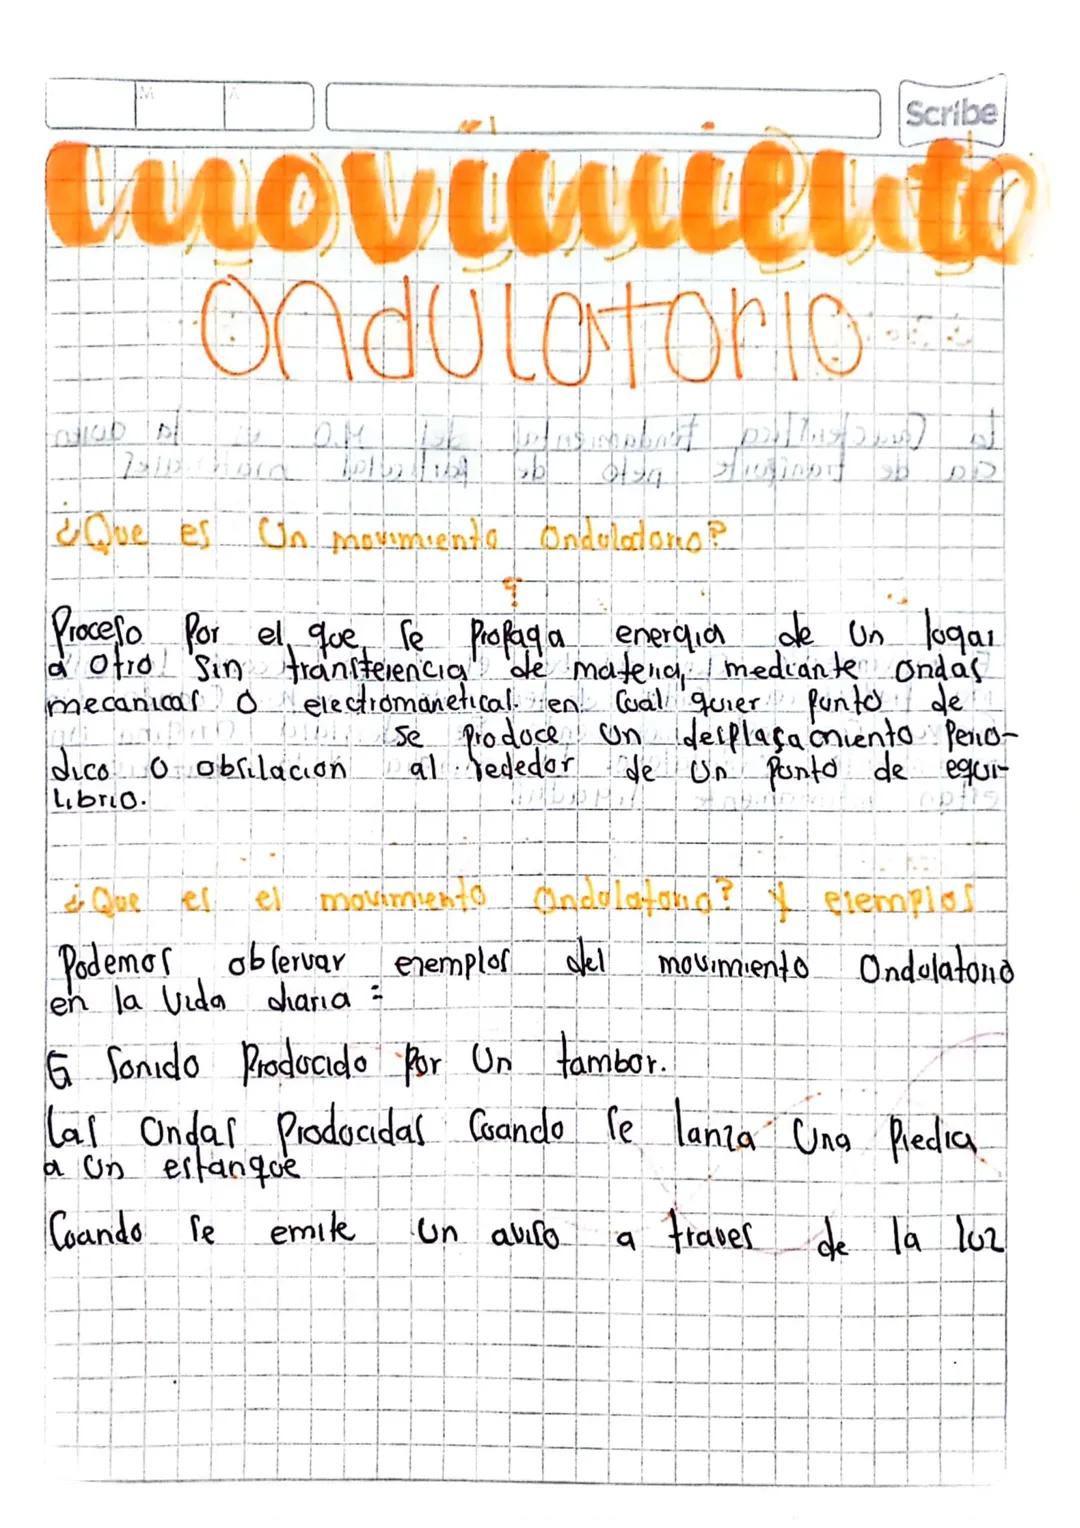 M A
Scribe
movimiento
ondulatorio
¿Que es Un movimiento Ondulatorio?
Proceso Por el que se Propaga energia de un lugar
a otro sin transferencia de materia, mediante ondas
mecanicas o electromaneticas. en Cual quier punto de
se produce un desplaçamiento Perio-
dico o obsilacion al rededor de un punto de equi-
Librio.
¿Que es el movimiento Ondulatorio? y ejemplos
Podemos observar ejemplos del movimiento Ondulatorio
en la Vida diaria:
Sonido Producido Por Un tambor.
Las Ondas Producidas Cuando se lanza Una Piedra
a un estanque
Cuando se emite un aviso a traves de la luz